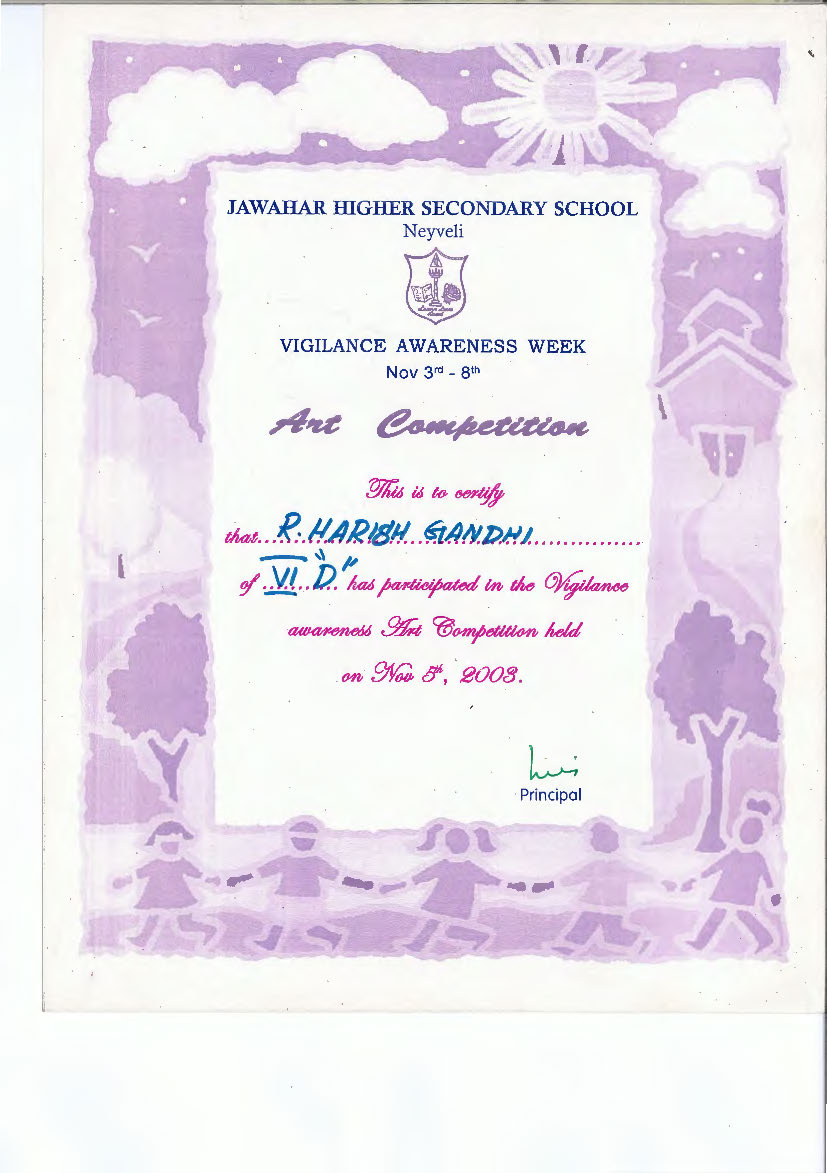 JAWAHAR HIGHER SECONDARY SCHOOL
Neyveli
VIGILANCE AWARENESS WEEK
Nov 3rd - 8th
Art Competition
This is to certify
that....R. HARISH GANDHI....................
of ...VI..."D".. has participated in the Vigilance
awareness Art Competition held
on Nov 5th, 2003.
Principal